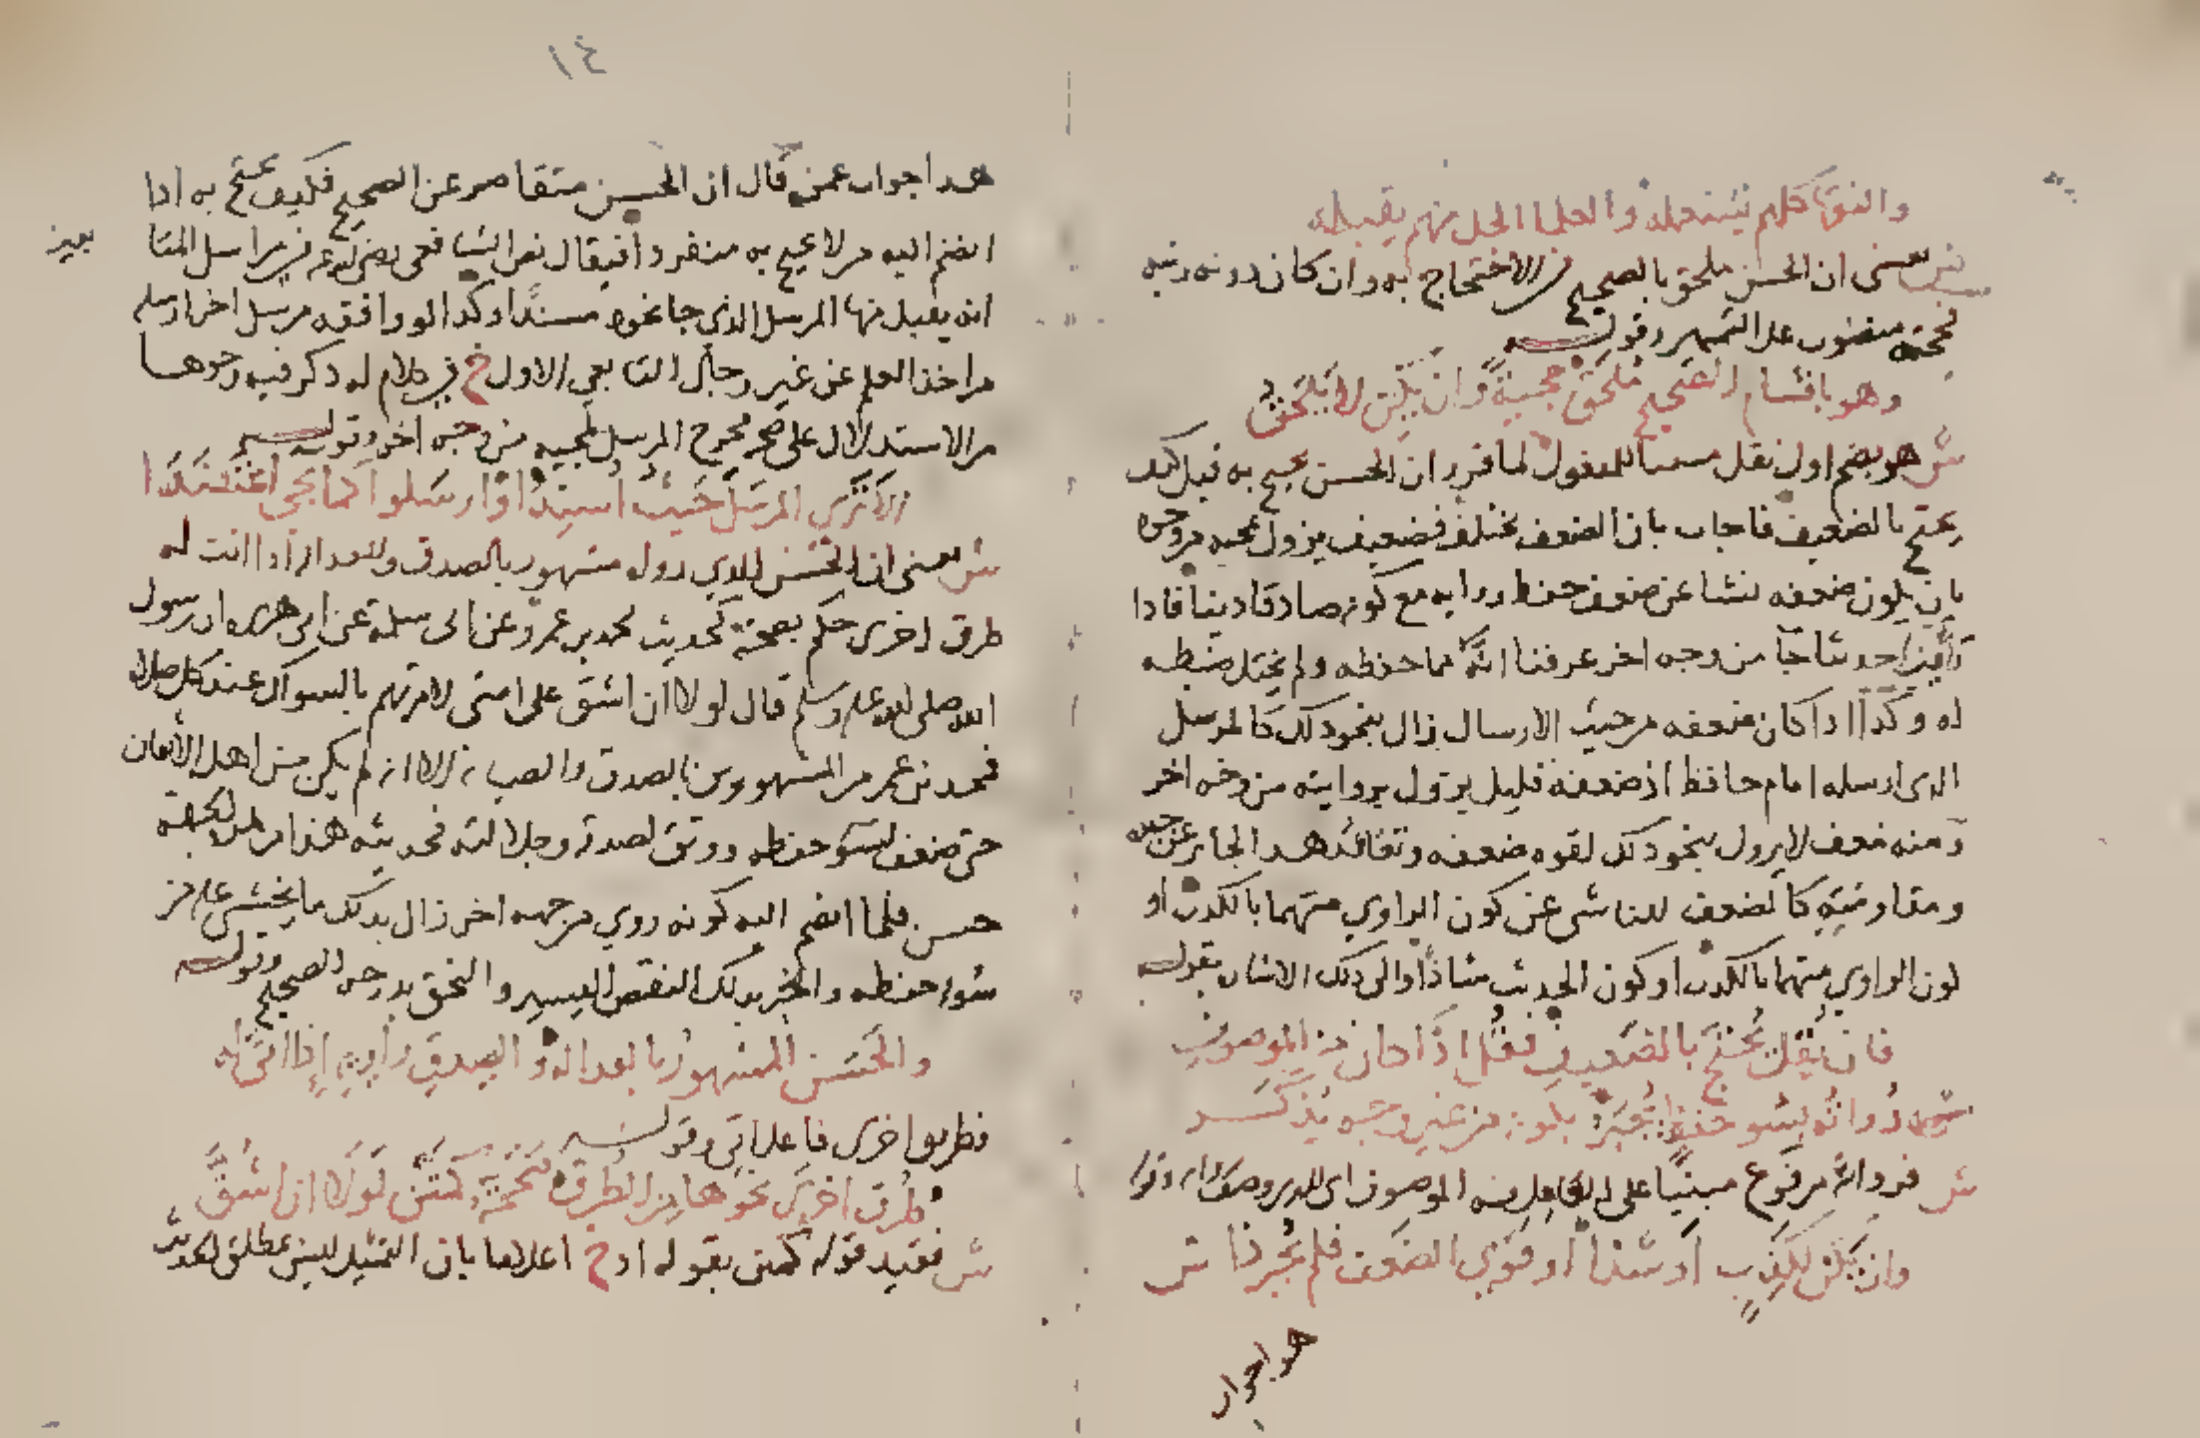 والفقها كلهم تستعمله والعلما الجل منهم يقبله
ش يعني ان الحسن ملحق بالصحيح في الاحتجاج به وان كان دونه رتبه
منصوب على التمييز وقوله
وهو باقسام الصحيح ملحق حجية وان يكن لا يلحق
ش هو بضم اول نقل مبنيا للمفعول لما قرر ان الحسن يحتج به قيل كيف
يحتج بالضعيف فاجاب بان الضعف مختلف فضعيف يزول بمجيه من وجوه
بان يكون ضعفه نشا عن ضعف حفظ راويه مع كونه صادقا دينا فاذا
راينا حديثا جا من وجه اخر عرفنا انه مما حفظه ولم يختل ضبطه
له وكذا اذا كان ضعفه من حيث الارسال زال بنحو ذلك كالمرسل
الذي ارسله امام حافظ اذ ضعفه قليل يزول بروايته من وجه اخر
ومنه ضعف لا يزول بنحو ذلك لقوه ضعفه وتقاعد هذا الجابر عن جبره
ومقاومته كالضعف الناشي عن كون الراوي متهما بالكذب او
كون الراوي متهما بالكذب او كون الحديث شاذا والى ذلك الاشاره بقوله
فان يقل يحتج بالضعيف فقل اذا كان من الموصوف
رواته بسو حفظ يجبر بكونه من غير وجه يذكر
ش فرواته مرفوع مبنيا على الفاعليه الموصوف اي الذي وصف رواته
وان يكن لكذب او شذا او قوي الضعف فلم يجبر ذا ش
هذا جواب
١٤
هذا جواب عمن قال ان الحسن متقاصر عن الصحيح فكيف يحتج به اذا
انضم اليه من لا يحتج به منفردا فيقال نص الشافعي رضي الله عنه في مراسل التا
بعين
انه يقبل منها المرسل الذي جا نحوه مسندا وكذا لو وافقه مرسل اخر ارسله
من اخذ العلم عن غير رجال التابعي الاول خ في كلام له ذكر فيه وجوها
من الاستدلال على صحه مخرج المرسل لمجيه من وجه اخر وقوله
الا ترى المرسل حيث اسندا او ارسلوا كما يجي اعتضدا
ش يعني ان الحسن الذي روله مشهور بالصدق والعداله اذا اتت له
طرق اخرى حكم بصحته كحديث محمد بن عمرو عن ابي سلمة عن ابي هريره ان رسول
الله صلى الله عليه وسلم قال لولا ان اشق على امتي لامرتهم بالسواك عند كل صلاة
فمحمد بن عمر من المشهورين بالصدق والصيانه الا انه لم يكن من اهل الاتقان
حتى ضعف لسو حفظه ووثق لصدقه وجلالته فحديثه هذا من هذه الجهة
حسن فلما انضم اليه كونه روي من جهه اخر زال بذلك ما يخشى عليه من
سوء حفظه وانجبر بذلك النقص اليسير والتحق بدرجه الصحيح وقوله
والحسن المشهور بالعداله والصدق راويه إذا اتى له
فطريق اخرى فاعل اتى وقوله
طرق اخرى نحوها من الطرق صححته كمتن لولا ان اشق
ش فقيد قوله كمتن بقوله اذ خ اعلاما بان التمثيل ليس بمطلق الحديث